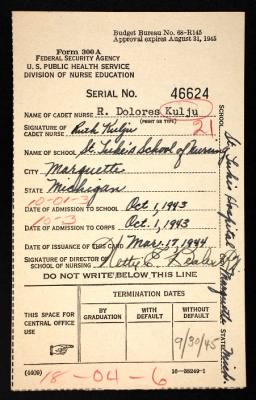 Budget Bureau No. 68-R145
Approval expires August 31, 1945
Form 300A
FEDERAL SECURITY AGENCY
U. S. PUBLIC HEALTH SERVICE
DIVISION OF NURSE EDUCATION
SERIAL No. 46624
NAME OF CADET NURSE R. Dolores Kulju
(PRINT OR TYPE)
21
SIGNATURE OF CADET NURSE Ruth Kulju
NAME OF SCHOOL St. Luke's School of Nursing
CITY Marquette
STATE Michigan
10-01-3
DATE OF ADMISSION TO SCHOOL Oct 1, 1943
10-3
DATE OF ADMISSION TO CORPS Oct. 1, 1943
DATE OF ISSUANCE OF THIS CARD Mar. 17, 1944
SIGNATURE OF DIRECTOR SCHOOL OF NURSING Netty E.
DO NOT WRITE BELOW THIS LINE
THIS SPACE FOR CENTRAL OFFICE USE
TERMINATION DATES
BY GRADUATION
WITH DEFAULT
WITHOUT DEFAULT
9/30/45
(4409)
16-38249-1
18-04-6
SCHOOL St. Luke's Hospital
CITY Marquette
STATE Mich.